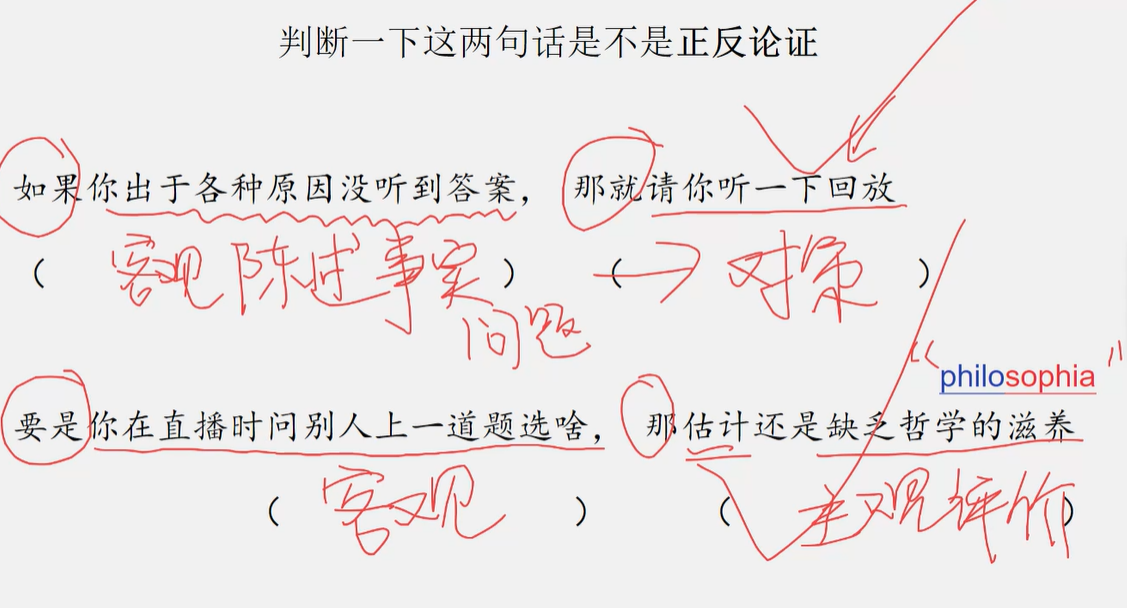 判断一下这两句话是不是正反论证
如果你出于各种原因没听到答案，那就请你听一下回放
（客观陈述事实）（→对策）
问题
“philosophia”
要是你在直播时问别人上一道题选啥，那估计还是缺乏哲学的滋养
（客观）（主观评价）